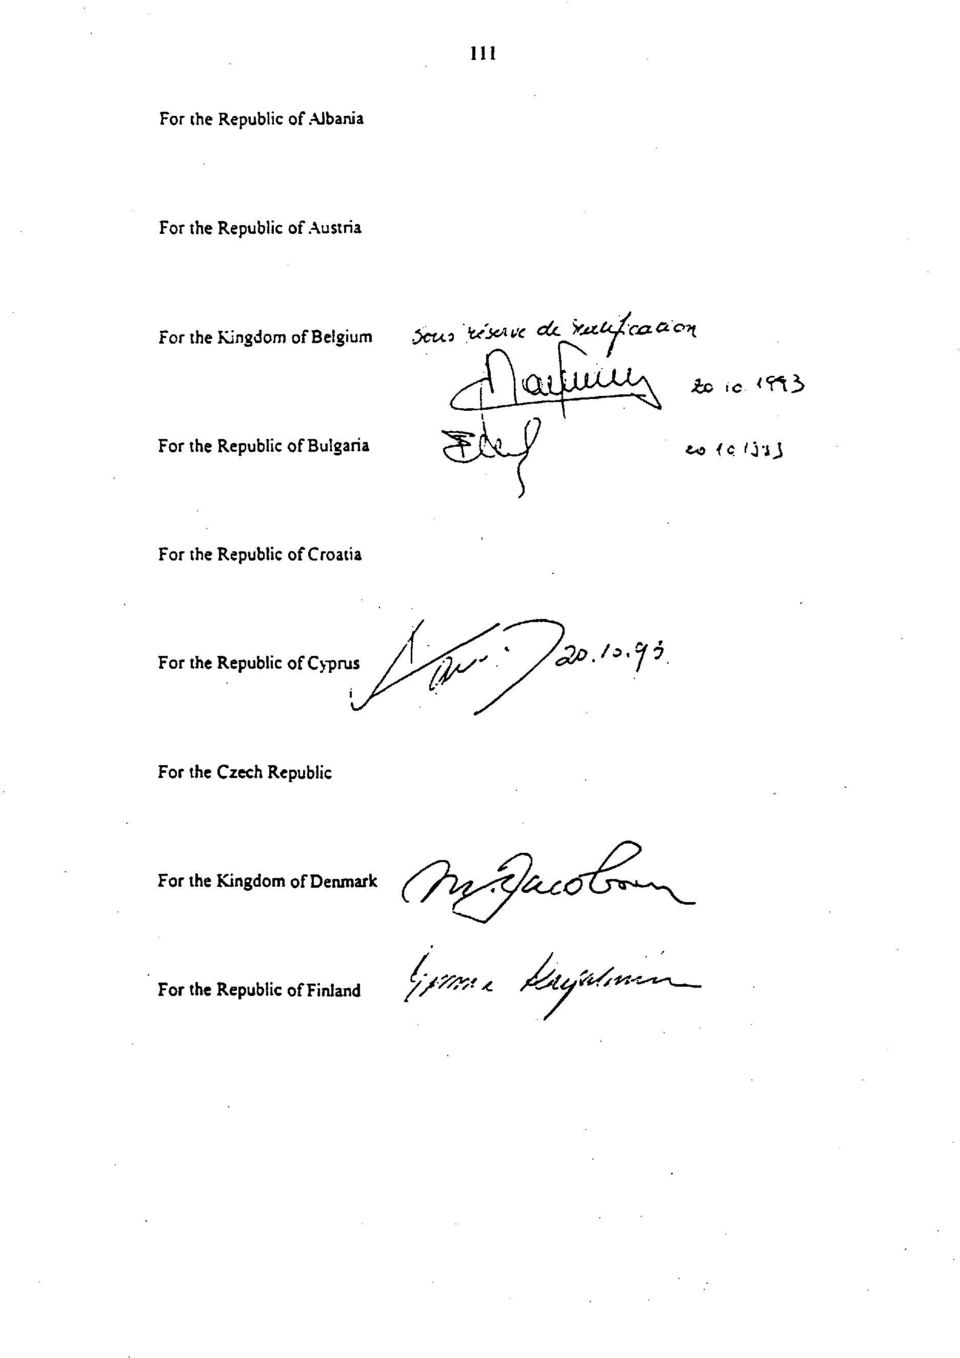 111
For the Republic of Albania
For the Republic of Austria
For the Kingdom of Belgium Sous réserve de ratification
20 10 1993
For the Republic of Bulgaria 20 10 1993
For the Republic of Croatia
For the Republic of Cyprus 20.10.93.
For the Czech Republic
For the Kingdom of Denmark M. Jacobsen
For the Republic of Finland